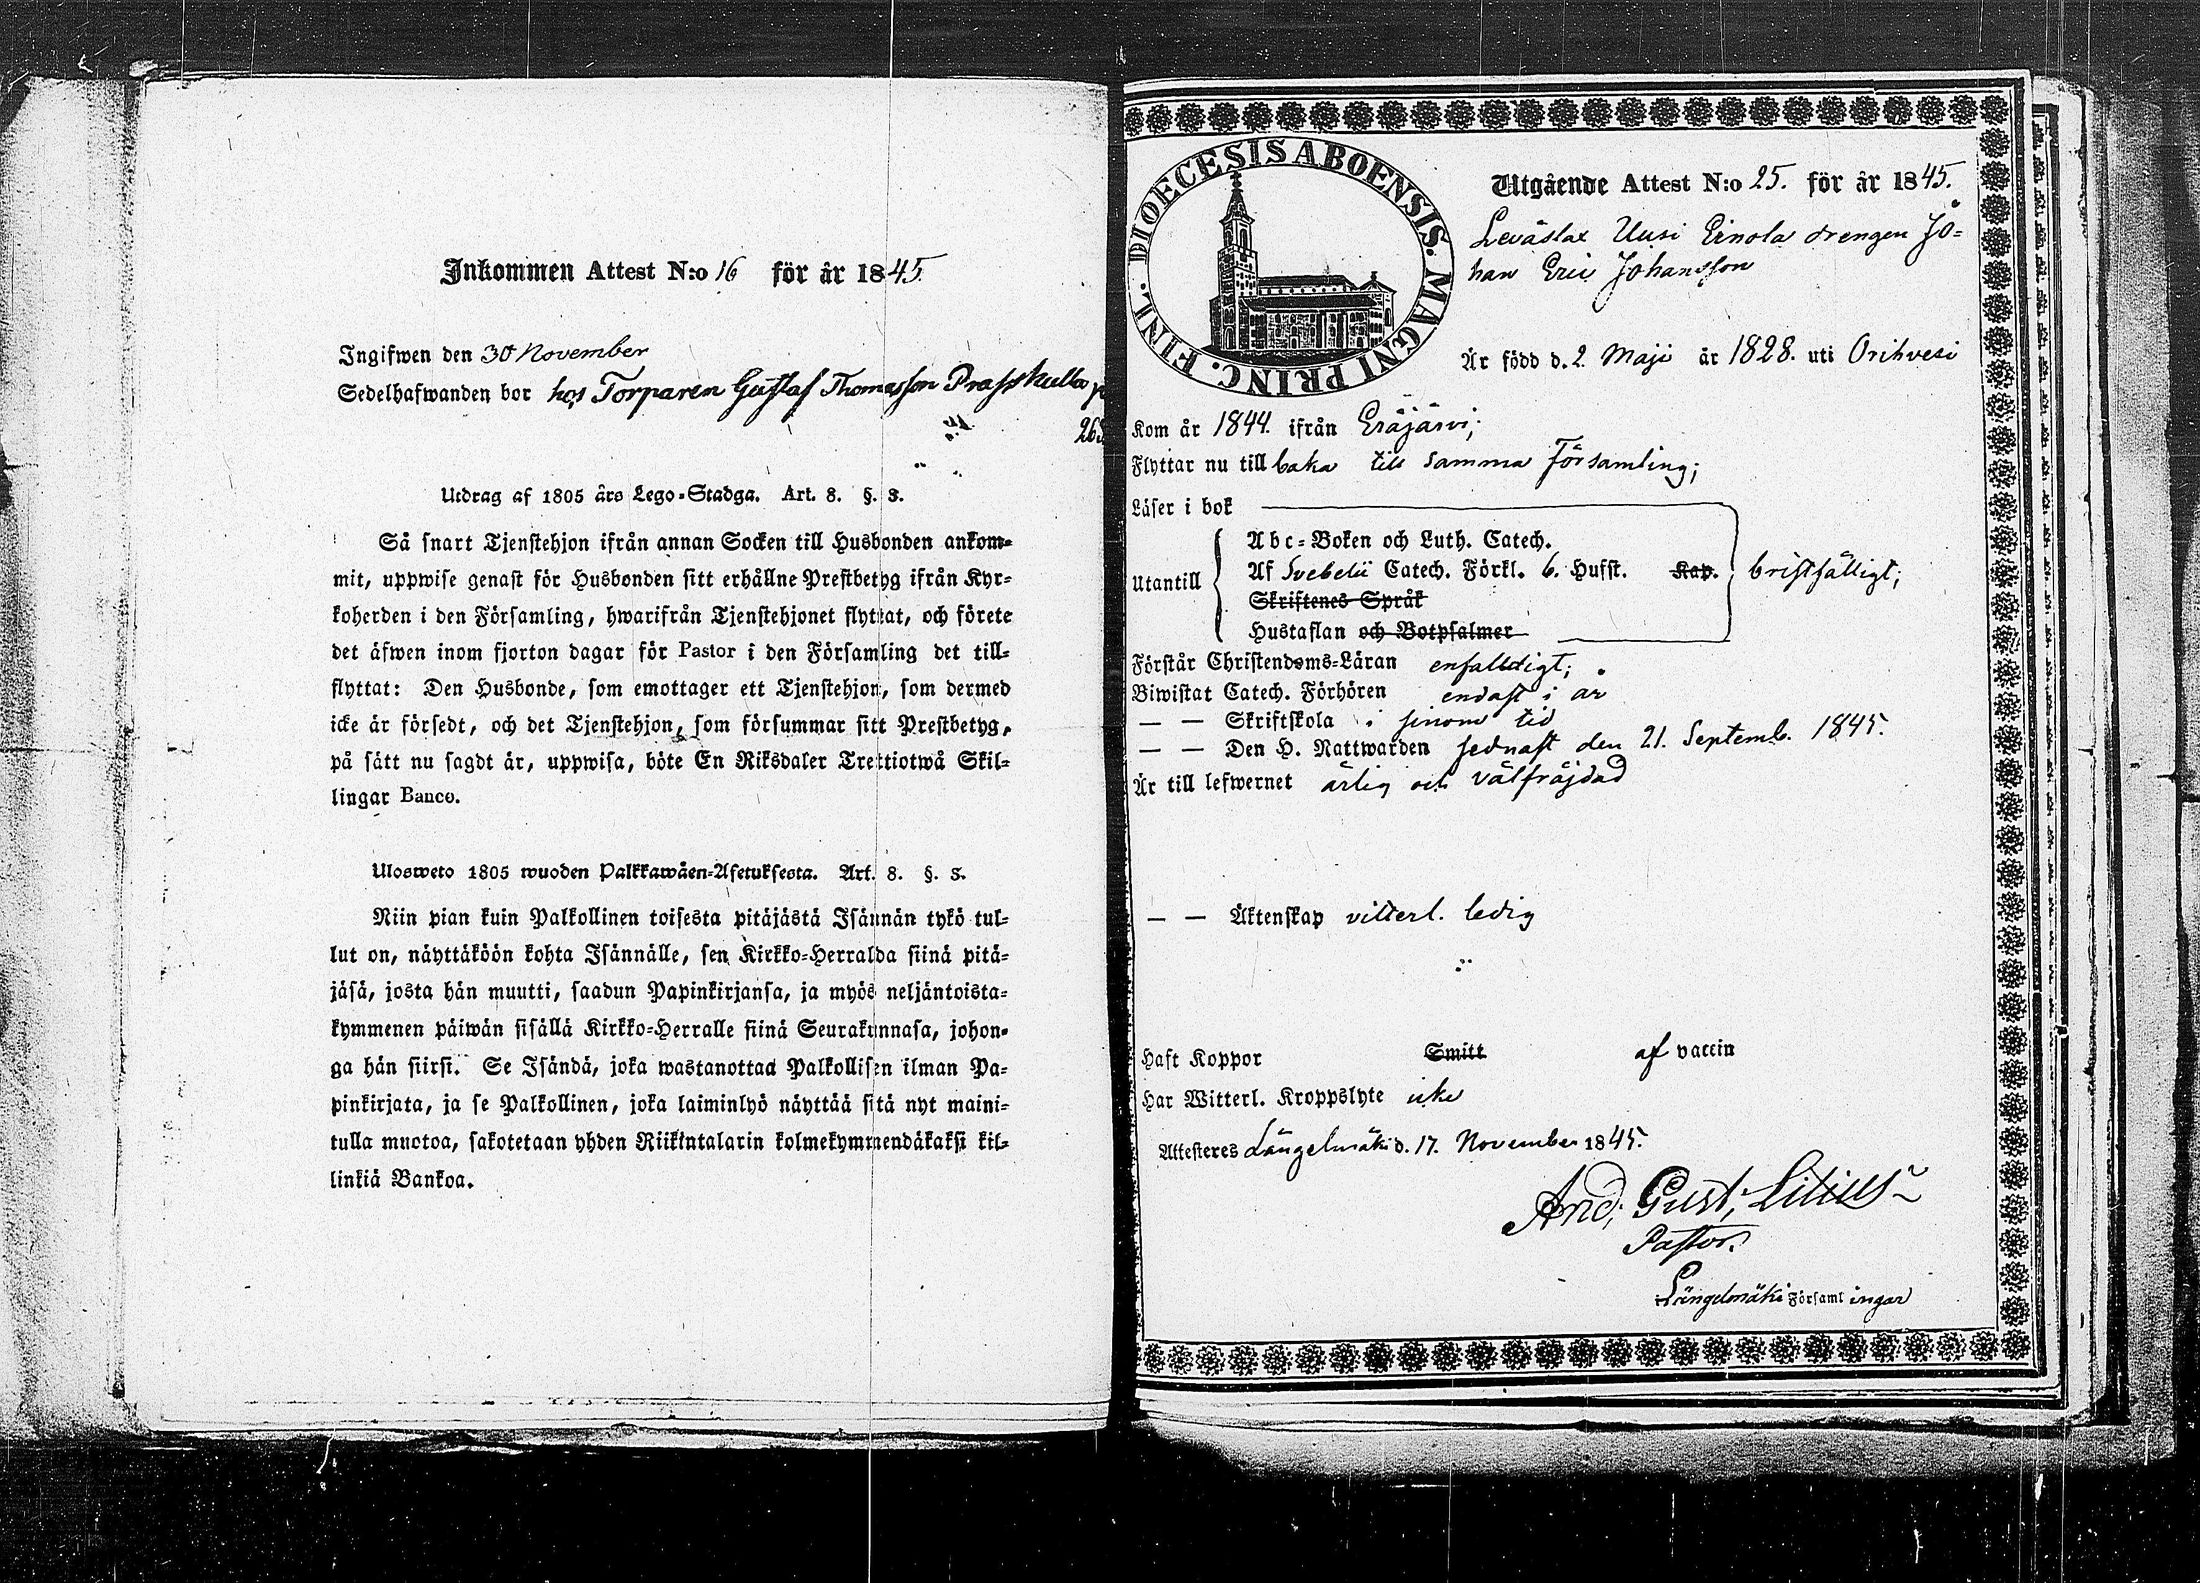 Inkommen Attest N:o 16 för år 1845.
Ingifwen den 30 November
Sedelhafwanden bor hos Torparen Gustaf Thomasson Prasskulla
263
Utdrag af 1805 års Lego-Stadga. Art. 8. §. 3.
Så snart Tjenstehjon ifrån annan Socken till Husbonden ankom-
mit, uppwise genast för Husbonden sitt erhållne Prestbetyg ifrån Kyr-
koherden i den Församling, hwarifrån Tjenstehjonet flyttat, och förete
det äfwen inom fjorton dagar för Pastor i den Församling det till-
flyttat: Den Husbonde, som emottager ett Tjenstehjon, som dermed
icke är försedt, och det Tjenstehjon, som försummar sitt Prestbetyg,
på sätt nu sagdt är, uppwisa, böte En Riksdaler Trettiotwå Skil-
lingar Banco.
Ulosweto 1805 wuoden Palkkawäen-Asetuksesta. Art. 8. §. 3.
Niin pian kuin Palkollinen toisesta pitäjästä Isännän tykö tul-
lut on, näyttäköön kohta Isännälle, sen Kirkko-Herralda siinä pitä-
jäsä, josta hän muutti, saadun Papinkirjansa, ja myös neljäntoista-
kymmenen päiwän sisällä Kirkko-Herralle siinä Seurakunnasa, johon-
ga hän siirsi. Se Isändä, joka wastanottaa Palkollisen ilman Pa-
pinkirjata, ja se Palkollinen, joka laiminlyö näyttää sitä nyt maini-
tulla muotoa, sakotetaan yhden Riikintalarin kolmekymmendäkaksi kil-
linkiä Bankoa.
DIOECESIS ABOENSIS. MAGNI PRINC. FINL.
Utgående Attest N:o 25. för år 1845.
Leväslax Uusi Einola drengen Jo-
han Eric Johansson
Är född d. 2 Maji år 1828. uti Orihvesi
Kom år 1844. ifrån Eräjärvi;
Flyttar nu till baka till samma Församling;
Läser i bok
Utantill
Abc-Boken och Luth. Catech.
Af Svebelii Catech. Förkl. 6. Hufst. Kap. bristfälligt;
Skriftenes Språk
Hustaflan och Botpsalmer
Förstår Christendoms-Läran enfalldigt;
Biwistat Catech. Förhören endast i år
— — Skriftskola i sinom tid
— — Den H. Nattwarden sednast den 21. Septemb. 1845.
Är till lefwernet ärlig och välfräjdad
— — Äktenskap vitterl. ledig
Haft Koppor Smitt af vaccin
Har Witterl. Kroppslyte icke
Attesteres Längelmäki d. 17. November 1845.
And. Gust. Lilius
Pastor.
i Längelmäki Församlingar